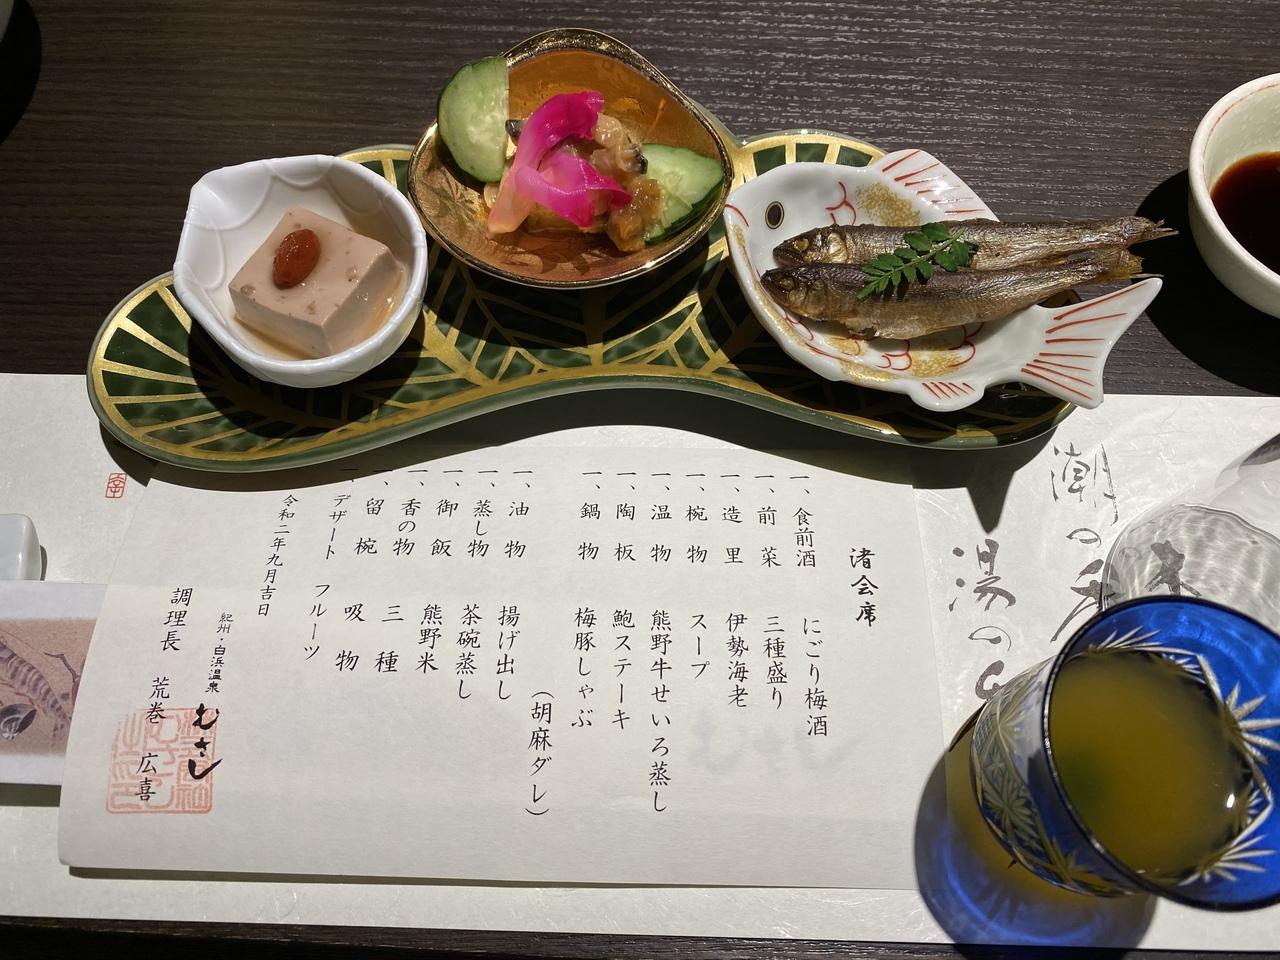 潮の
湯の
渚会席
一、食前酒 にごり梅酒
一、前菜 三種盛り
一、造里 伊勢海老
一、椀物 スープ
一、温物 熊野牛せいろ蒸し
一、陶板 鮑ステーキ
一、鍋物 梅豚しゃぶ
（胡麻ダレ）
一、油物 揚げ出し
一、蒸し物 茶碗蒸し
一、御飯 熊野米
一、香の物 三種
一、留椀 吸物
一、デザート フルーツ
令和二年九月吉日
紀州・白浜温泉
むさし
調理長 荒巻 広喜